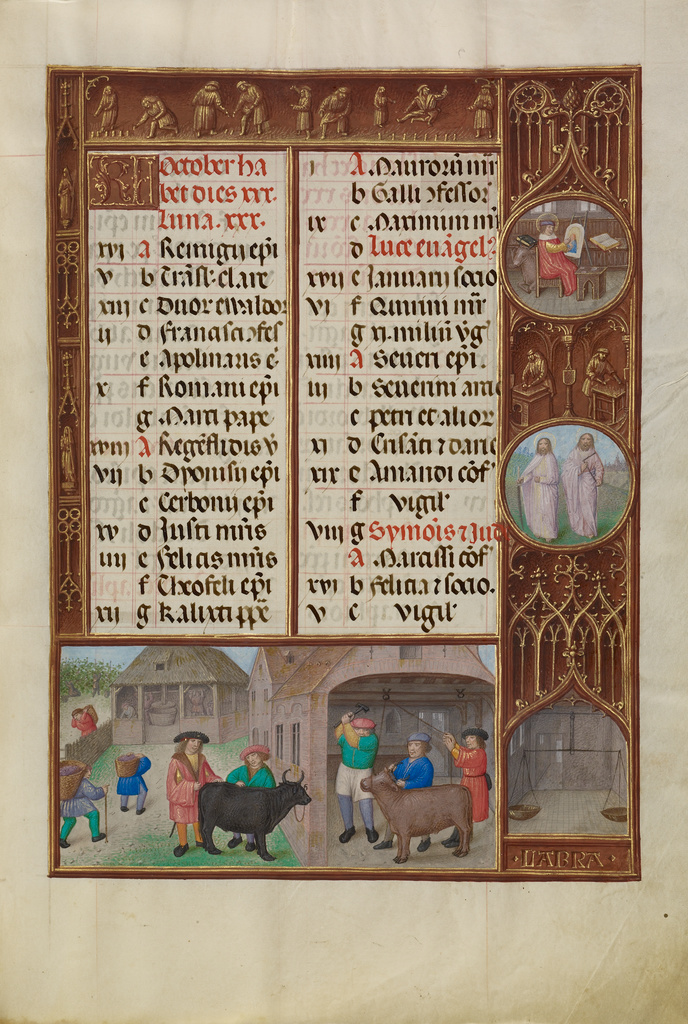 KL October ha
bet dies xxx.
Luna. xxx.
xvi A Remigii epi
v b Transl. clare
xiii c Duor ewaldor
ii d Francisci ɔfes
e Apolinaris e
x f Romani epi
g Marci pape
xviii A
vii b Dyonisii epi
c Cerbonii epi
xv d Iusti mris
iiii e Felicis mris
f Theofeli epi
xii g Kalixti ppe
i A Maurorum mr
b Galli ɔfessor
ix c Maximini mr
d Luce euāgel
xvii e Ianuarii socio
vi f Quirini mr
g xi. milium vg
xiiii A Seueri epi.
iii b Seuerini
c petri et alior
xi d Crisāti ⁊ darie
xix e Amandi cōf
f vigil
viii g Symōis ⁊ Jud
A Narcissi cōf
xvi b Felicia ⁊ socio.
v c vigil
LIABRA